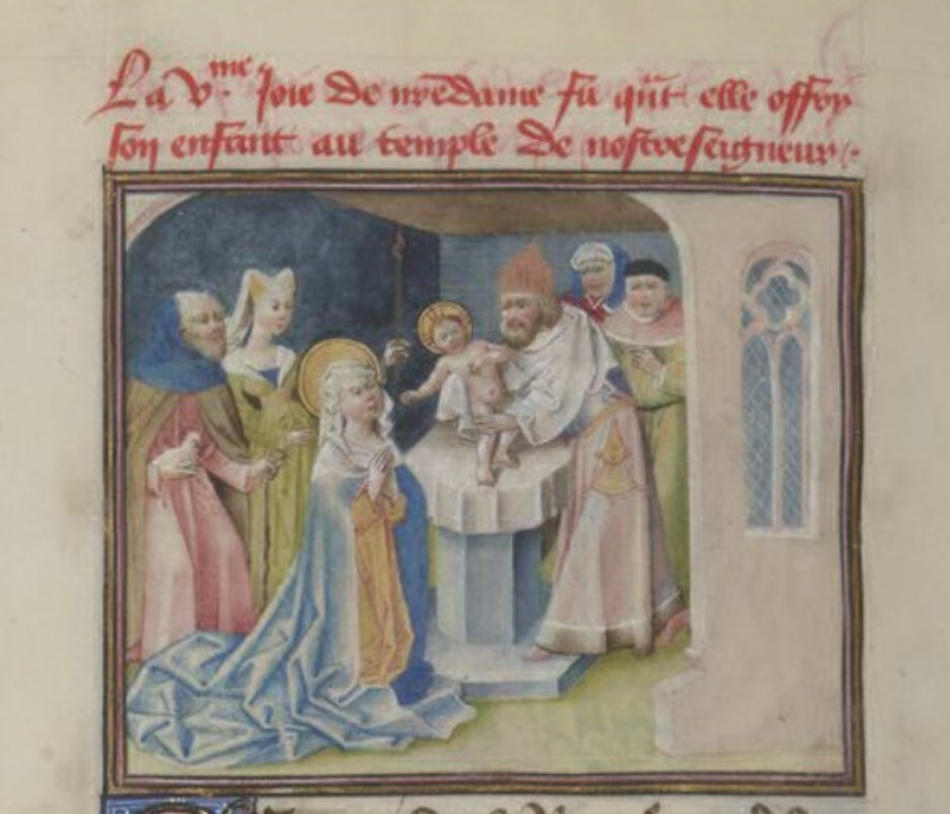 La v.me Joie de nr̄edame fu qu̅t elle offry
son enfant au temple de nostreseigneur.